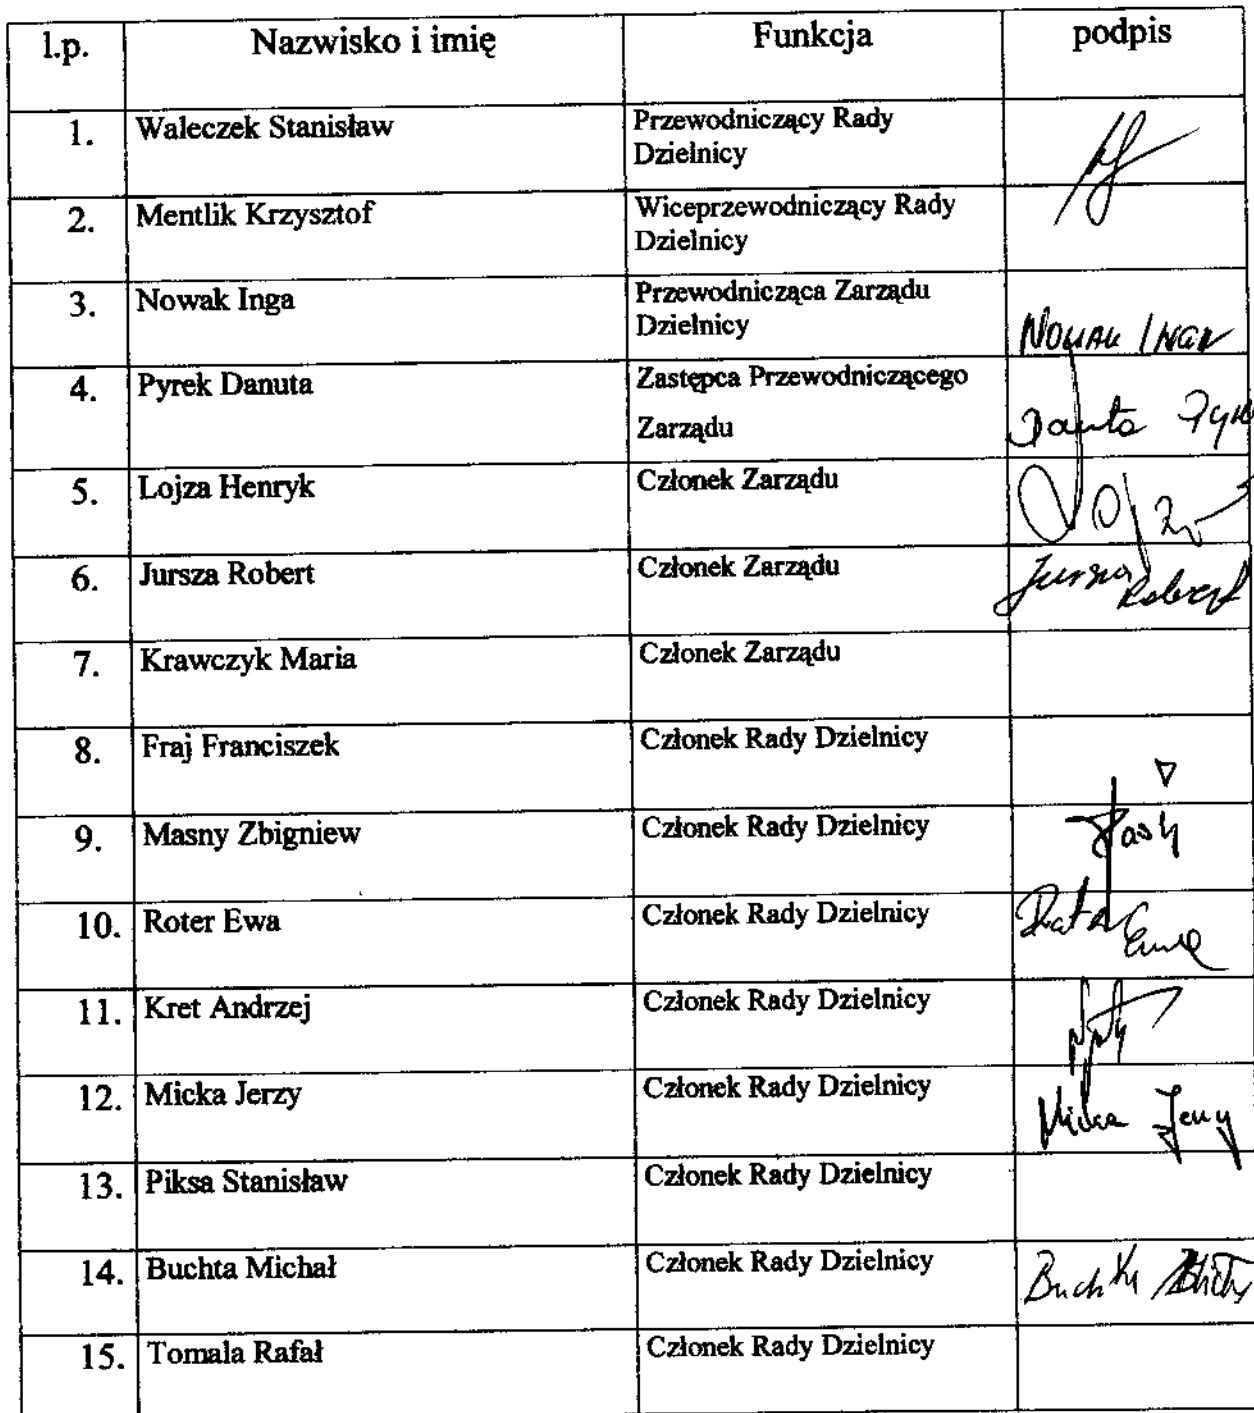 l.p. Nazwisko i imię Funkcja podpis
1. Waleczek Stanisław Przewodniczący Rady
Dzielnicy
2. Mentlik Krzysztof Wiceprzewodniczący Rady
Dzielnicy
3. Nowak Inga Przewodnicząca Zarządu
Dzielnicy Nowak Inga
4. Pyrek Danuta Zastępca Przewodniczącego
Zarządu Danuta
5. Lojza Henryk Członek Zarządu
6. Jursza Robert Członek Zarządu Jursza
Robert
7. Krawczyk Maria Członek Zarządu
8. Fraj Franciszek Członek Rady Dzielnicy
9. Masny Zbigniew Członek Rady Dzielnicy
10. Roter Ewa Członek Rady Dzielnicy
Ewa
11. Kret Andrzej Członek Rady Dzielnicy
12. Micka Jerzy Członek Rady Dzielnicy Micka Jerzy
13. Piksa Stanisław Członek Rady Dzielnicy
14. Buchta Michał Członek Rady Dzielnicy Buchta
15. Tomala Rafał Członek Rady Dzielnicy